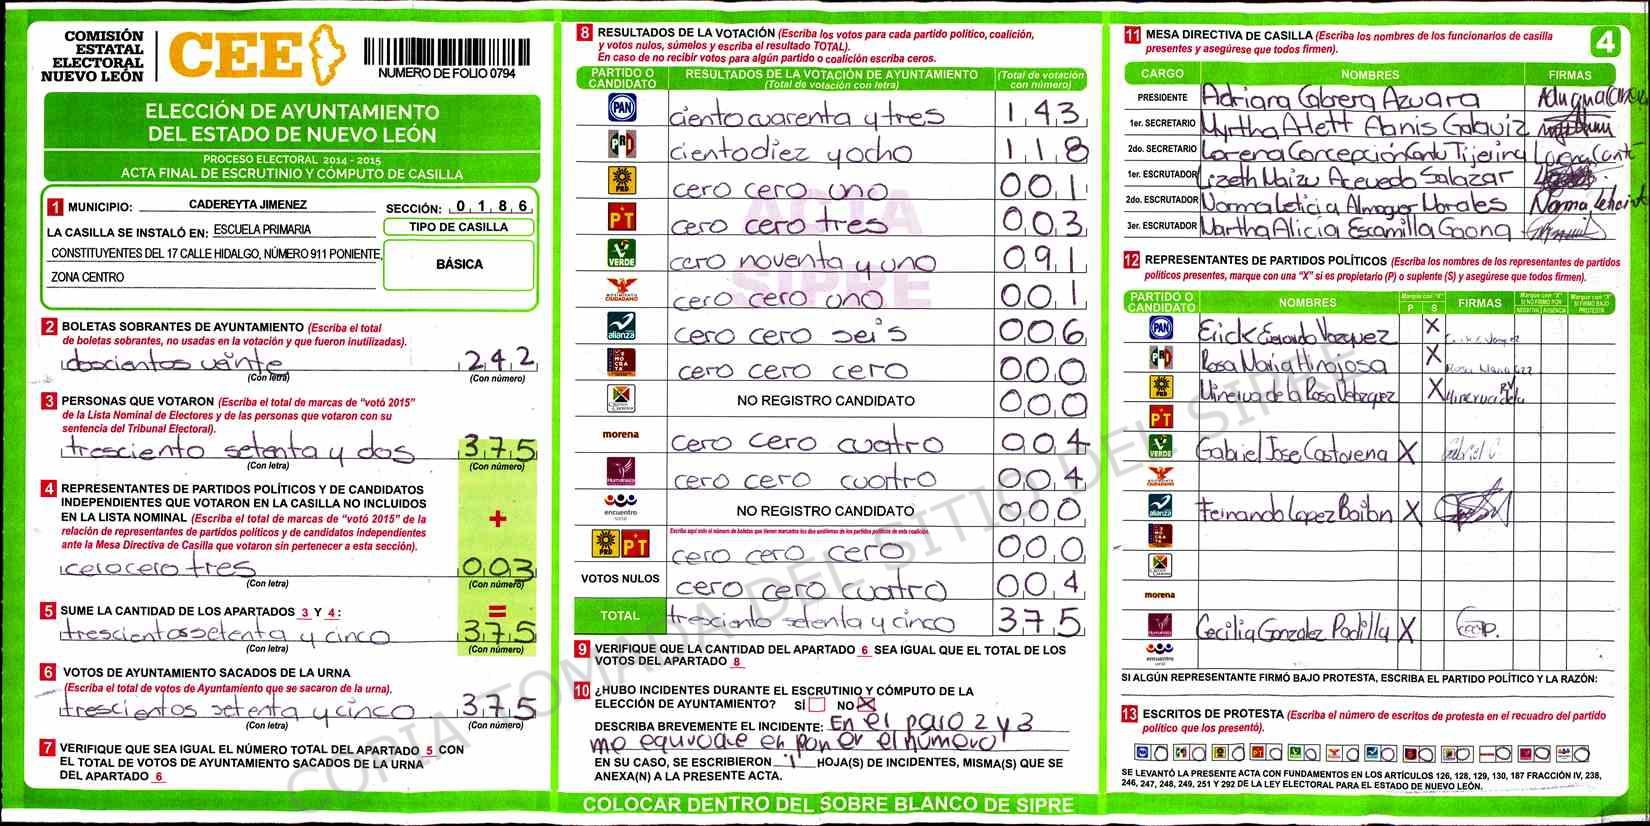 COMISIÓN
ESTATAL
ELECTORAL
NUEVO LEÓN
CEE
NUMERO DE FOLIO 0794
ELECCIÓN DE AYUNTAMIENTO
DEL ESTADO DE NUEVO LEÓN
PROCESO ELECTORAL 2014 - 2015
ACTA FINAL DE ESCRUTINIO Y CÓMPUTO DE CASILLA
1 MUNICIPIO: CADEREYTA JIMENEZ SECCIÓN: 0186
LA CASILLA SE INSTALÓ EN: ESCUELA PRIMARIA
CONSTITUYENTES DEL 17 CALLE HIDALGO, NÚMERO 911 PONIENTE,
ZONA CENTRO
TIPO DE CASILLA
BÁSICA
2 BOLETAS SOBRANTES DE AYUNTAMIENTO (Escriba el total
de boletas sobrantes, no usadas en la votación y que fueron inutilizadas).
doscientos veinte 242
(Con letra) (Con número)
3 PERSONAS QUE VOTARON (Escriba el total de marcas de "votó 2015"
de la Lista Nominal de Electores y de las personas que votaron con su
sentencia del Tribunal Electoral).
tresciento setenta y dos 375
(Con letra) (Con número)
4 REPRESENTANTES DE PARTIDOS POLÍTICOS Y DE CANDIDATOS
INDEPENDIENTES QUE VOTARON EN LA CASILLA NO INCLUIDOS
EN LA LISTA NOMINAL (Escriba el total de marcas de "votó 2015" de la
relación de representantes de partidos políticos y de candidatos independientes
ante la Mesa Directiva de Casilla que votaron sin pertenecer a esta sección).
+
cero cero tres 003
(Con letra) (Con número)
5 SUME LA CANTIDAD DE LOS APARTADOS 3 Y 4: =
trescientos setenta y cinco 375
(Con letra) (Con número)
6 VOTOS DE AYUNTAMIENTO SACADOS DE LA URNA
(Escriba el total de votos de Ayuntamiento que se sacaron de la urna).
trescientos setenta y cinco 375
(Con letra) (Con número)
7 VERIFIQUE QUE SEA IGUAL EL NÚMERO TOTAL DEL APARTADO 5 CON
EL TOTAL DE VOTOS DE AYUNTAMIENTO SACADOS DE LA URNA
DEL APARTADO 6
8 RESULTADOS DE LA VOTACIÓN (Escriba los votos para cada partido político, coalición,
y votos nulos, súmelos y escriba el resultado TOTAL).
En caso de no recibir votos para algún partido o coalición escriba ceros.
PARTIDO O CANDIDATO
RESULTADOS DE LA VOTACIÓN DE AYUNTAMIENTO
(Total de votación con letra)
(Total de votación con número)
PAN ciento cuarenta y tres 143
PRD ciento diez y ocho 118
PRD cero cero uno 001
PT cero cero tres 003
VERDE cero noventa y uno 091
MOVIMIENTO CIUDADANO cero cero uno 001
alianza cero cero seis 006
DEMOCRATA cero cero cero 000
NO REGISTRO CANDIDATO 000
morena cero cero cuatro 004
Humanista cero cero cuatro 004
encuentro social NO REGISTRO CANDIDATO 000
PRD PT cero cero cero 000
VOTOS NULOS cero cero cuatro 004
TOTAL tresciento setenta y cinco 375
ACTA
SIPRE
9 VERIFIQUE QUE LA CANTIDAD DEL APARTADO 6 SEA IGUAL QUE EL TOTAL DE LOS
VOTOS DEL APARTADO 8
10 ¿HUBO INCIDENTES DURANTE EL ESCRUTINIO Y CÓMPUTO DE LA
ELECCIÓN DE AYUNTAMIENTO? SÍ NO X
DESCRIBA BREVEMENTE EL INCIDENTE: En el paso 2 y 3
me equivoque en poner el número
EN SU CASO, SE ESCRIBIERON 1 HOJA(S) DE INCIDENTES, MISMA(S) QUE SE
ANEXA(N) A LA PRESENTE ACTA.
COLOCAR DENTRO DEL SOBRE BLANCO DE SIPRE
11 MESA DIRECTIVA DE CASILLA (Escriba los nombres de los funcionarios de casilla
presentes y asegúrese que todos firmen).
4
CARGO NOMBRES FIRMAS
PRESIDENTE Adriana Cabrera Azuara
1er. SECRETARIO Myrtha Alett Alanis Galaviz
2do. SECRETARIO Lorena Concepción Cantu Tijerina Lorena Cantú
1er. ESCRUTADOR Lizeth Maizu Acevedo Salazar
2do. ESCRUTADOR Norma Leticia Almaguer Morales Norma Leticia
3er. ESCRUTADOR Martha Alicia Escamilla Gaona
12 REPRESENTANTES DE PARTIDOS POLÍTICOS (Escriba los nombres de los representantes de partidos
políticos presentes, marque con una "X" si es propietario (P) o suplente (S) y asegúrese que todos firmen).
PARTIDO O CANDIDATO NOMBRES Marque con "X" P S FIRMAS Marque con "X" SI NO FIRMÓ POR NEGATIVA AUSENCIA Marque con "X" SI FIRMÓ BAJO PROTESTA
PAN Erick Gerardo Vazquez X
Rosa Maria Hinojosa X
PRD Minerva de la Rosa Velazquez X Minerva
PT
VERDE Gabriel Jose Castorena X Gabriel
alianza Fernando Lopez Bailon X
morena
Humanista Cecilia Gonzalez Padilla X
encuentro social
SI ALGÚN REPRESENTANTE FIRMÓ BAJO PROTESTA, ESCRIBA EL PARTIDO POLÍTICO Y LA RAZÓN:
13 ESCRITOS DE PROTESTA (Escriba el número de escritos de protesta en el recuadro del partido
político que los presentó).
SE LEVANTÓ LA PRESENTE ACTA CON FUNDAMENTOS EN LOS ARTÍCULOS 126, 128, 129, 130, 187 FRACCIÓN IV, 238,
246, 247, 248, 249, 251 Y 292 DE LA LEY ELECTORAL PARA EL ESTADO DE NUEVO LEÓN.
COPIA TOMADA DEL SITIO DEL SIPRE